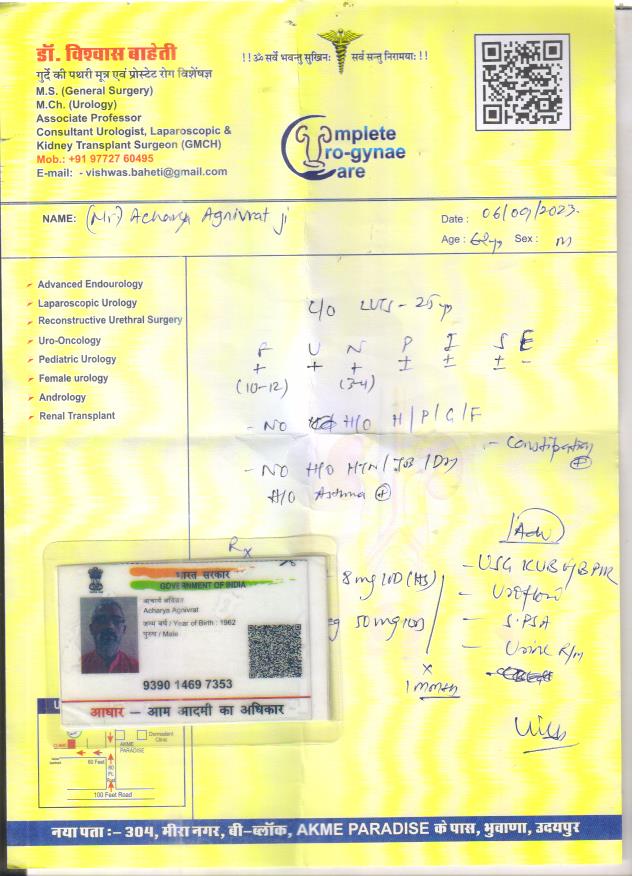 डॉ. विश्वास बाहेती
गुर्दे की पथरी मूत्र एवं प्रोस्टेट रोग विशेषज्ञ
M.S. (General Surgery)
M.Ch. (Urology)
Associate Professor
Consultant Urologist, Laparoscopic &
Kidney Transplant Surgeon (GMCH)
Mob.: +91 97727 60495
E-mail: - vishwas.baheti@gmail.com
!!ॐ सर्वे भवन्तु सुखिनः सर्व सन्तु निरामयाः!!
Complete
Uro-gynae
Care
NAME: (Mr) Acharya Agnivrat ji
Date : 06/09/2023
Age : 62yr Sex : m
Advanced Endourology
Laparoscopic Urology
Reconstructive Urethral Surgery
Uro-Oncology
Pediatric Urology
Female urology
Andrology
Renal Transplant
C/o LUTS - 25yr
F U N P I S E
+ + + ± ± ± -
(10-12) (3-4)
- NO H/O H/P/G/F
- Constipation +
- NO H/O HTN/TB/DM
H/O Asthma +
Rx
Adv
8mg 1OD (HS)
50mg 1OD
x
1 month
- USG KUB
- Uroflow
- S.PSA
- Urine R/m
भारत सरकार
GOVERNMENT OF INDIA
आचार्य अग्निव्रत
Acharya Agnivrat
जन्म वर्ष / Year of Birth : 1962
पुरुष / Male
9390 1469 7353
आधार – आम आदमी का अधिकार
CLINIC
AKME
PARADISE
Dermadent
Clinic
60 Feet
100 Feet Road
नया पता :- 304, मीरा नगर, बी-ब्लॉक, AKME PARADISE के पास, भुवाणा, उदयपुर